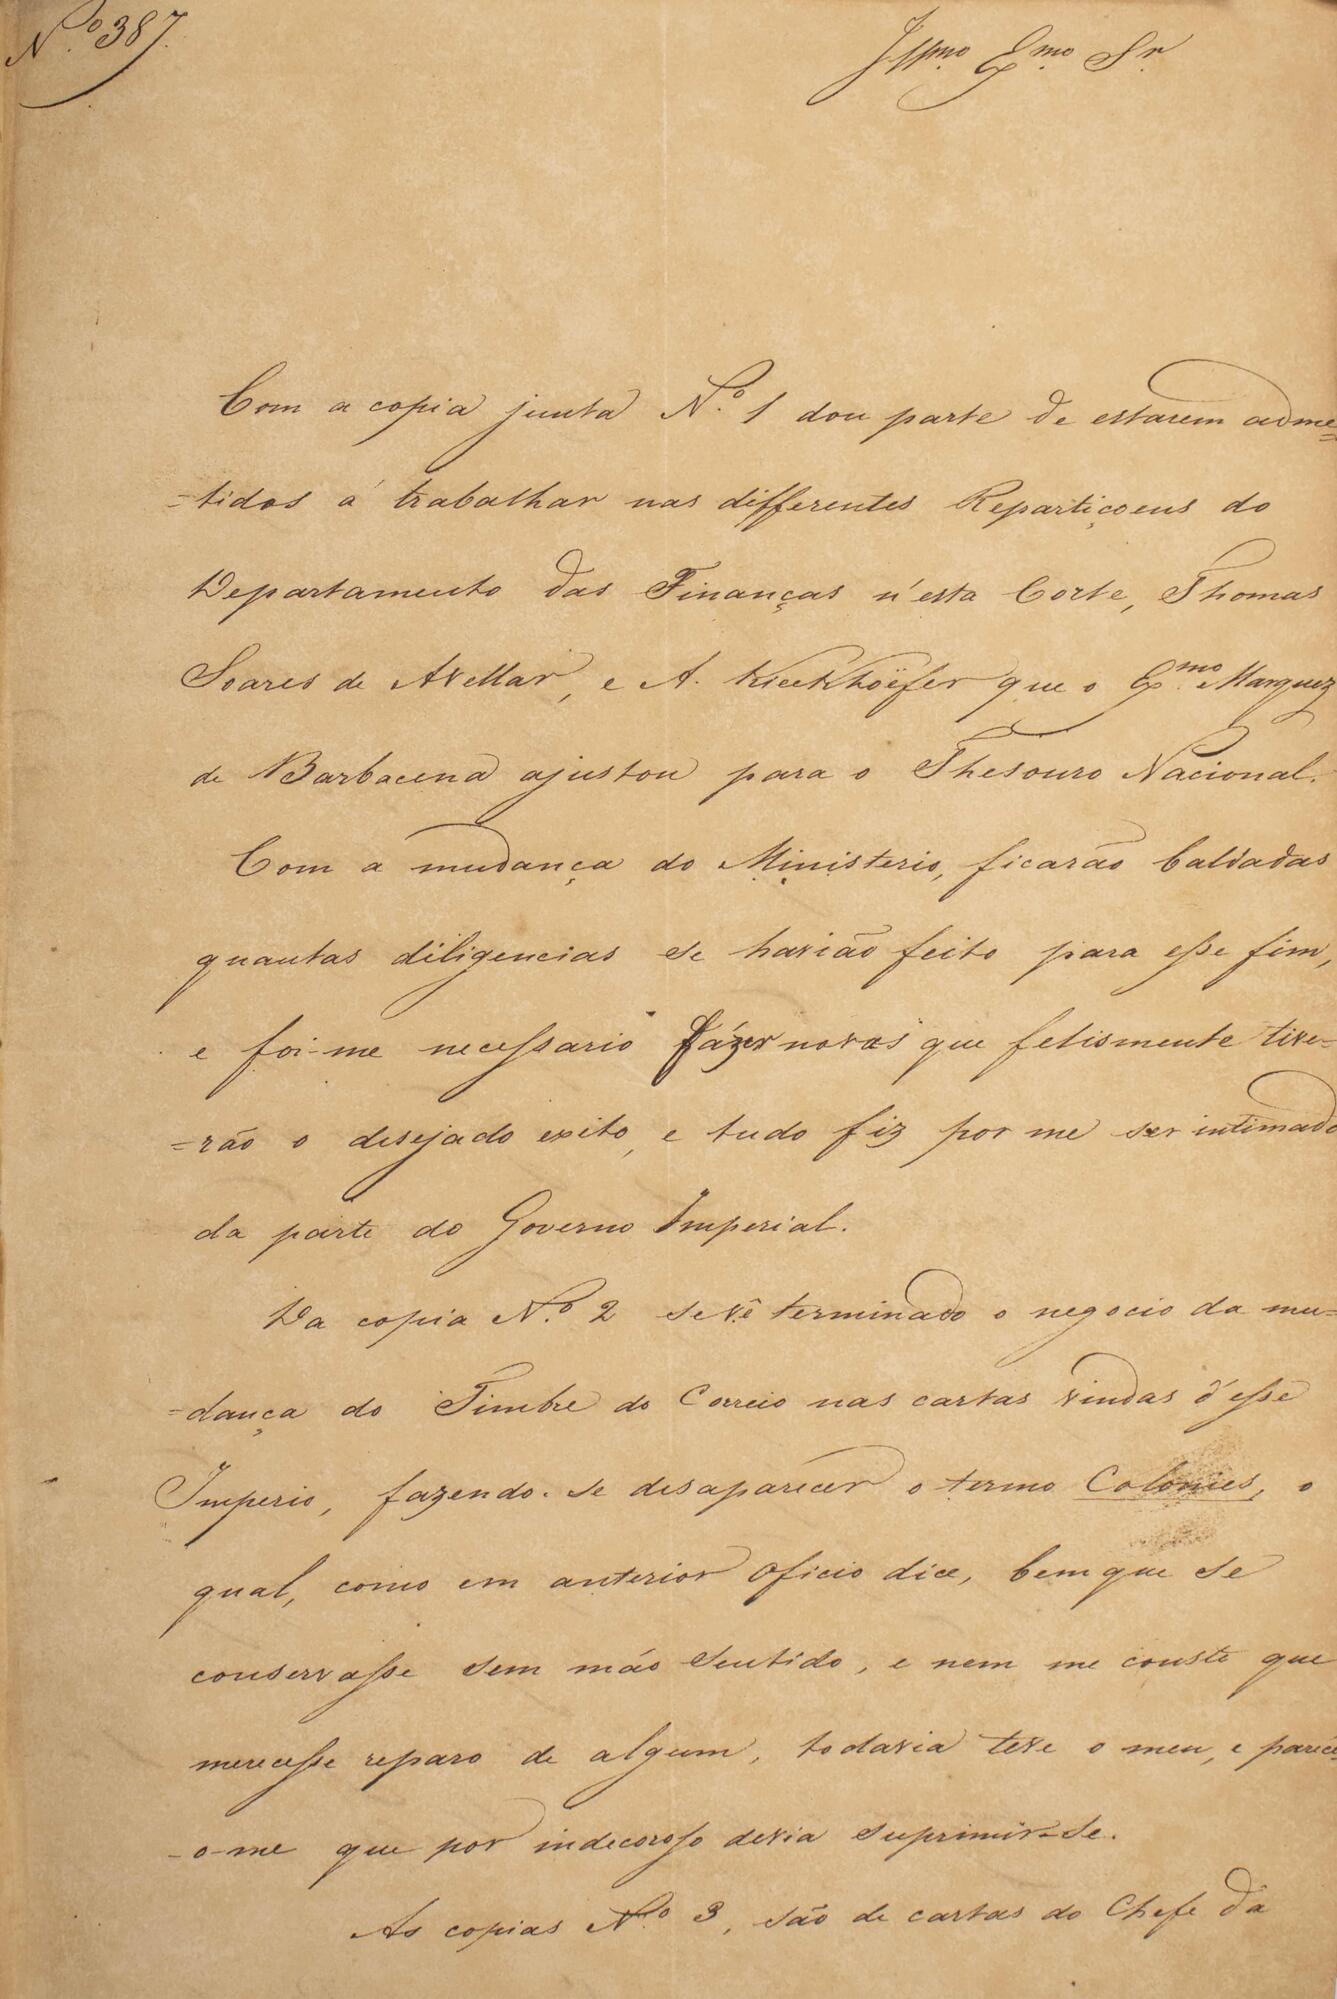 N.º 387.
Illmo. Exmo. Sr.
Com a copia junta N.º 1 dou parte de estarem adme=
=tidos á trabalhar nas differentes Repartiçoens do
Departamento das Finanças n'esta Corte, Thomas
Soares de Avellar, e A. Kieckhoëfer que o Exmo. Marquez
de Barbacena ajustou para o Thesouro Nacional.
Com a mudança do Ministerio, ficarão baldadas
quantas diligencias se havião feito para esse fim,
e foi-me necessario fázer novas que felismente tive=
=rão o desejado exito, e tudo fiz por me ser intimado
da parte do Governo Imperial.
Da copia N.º 2 se vê terminado o negocio da mu=
=dança do Timbre do Correio nas cartas vindas d'esse
Imperio, fazendo-se desaparecer o termo Colonies, o
qual, como em anterior oficio dice, bem que se
conservasse sem máo sentido, e nem me conste que
merecesse reparo de algum, todavia teve o meu, e parece
-o-me que por indecoroso devia suprimir-se.
As copias N.º 3, são de cartas do Chefe da